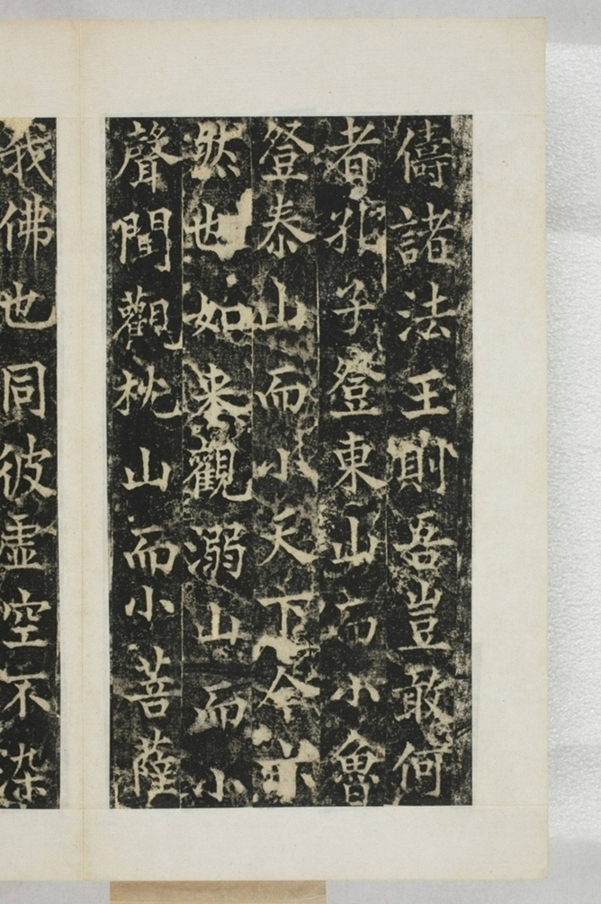 儔諸法王則吾豈敢何
者孔子登東山而小魯
登泰山而小天下今亦
然也如来觀溺山而小
聲聞觀枕山而小菩薩
我佛也同彼虚空不染